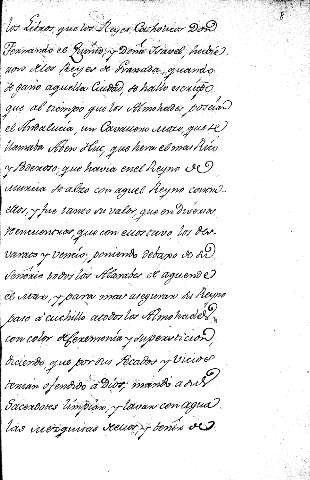 los Libros, que los Reyes Catholicos Don
Fernando el Quinto, y Doña Isavel, hubie
ron de los Reyes de Granada, quando
se gano aquella Ciudad, se hallo escripto
que al tiempo que los Almohades, poseian
el Andalucia, un Cavallero Moro, que se
llamaba Aben Huc, que hera el mas Rico
y Poderoso, que havia en el Reyno de
Murcia se alzo con aquel Reyno contra
ellos, y fue tanto su valor, que en diversos
Reencuentros, que con ellos tuvo, los des
varato y vencio, poniendo debaxo de su
Señorio todos los Alarabes de aquende
el Mar, y para mas asegurar su Reyno
paso a cuchillo a todos los Almohades
con color de ceremonia y supersticion,
diciendo, que por sus Pecados, y vicios
tenian ofendido a Dios; mando a sus
Sacerdotes limpiar, y lavar con agua
las Mezquitas de ellos, y de